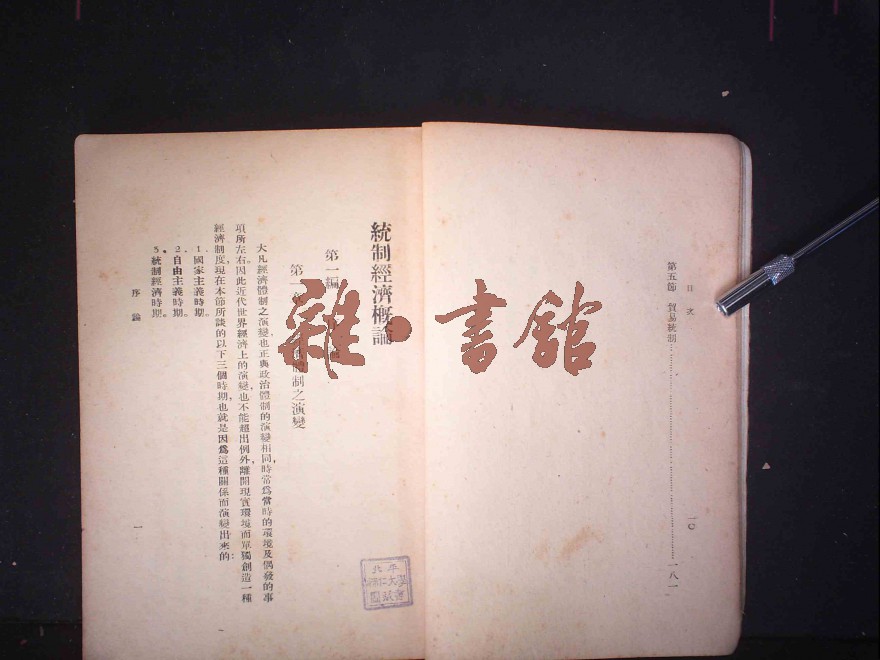 目次
一〇
第五節 貿易統制……………………………一八一
統制經濟概論
第一編
第一 體制之演變
大凡經濟體制之演變，也正與政治體制的演變相同，時常爲當時的環境及偶發的事
項所左右。因此近代世界經濟上的演變，也不能超出例外，離開現實環境而單獨創造一種
經濟制度，現在本節所談的以下三個時期，也就是因爲這種關係而演變出來的：
1．國家主義時期。
2．自由主義時期。
3．統制經濟時期。
序論
一
雜·書館
北平